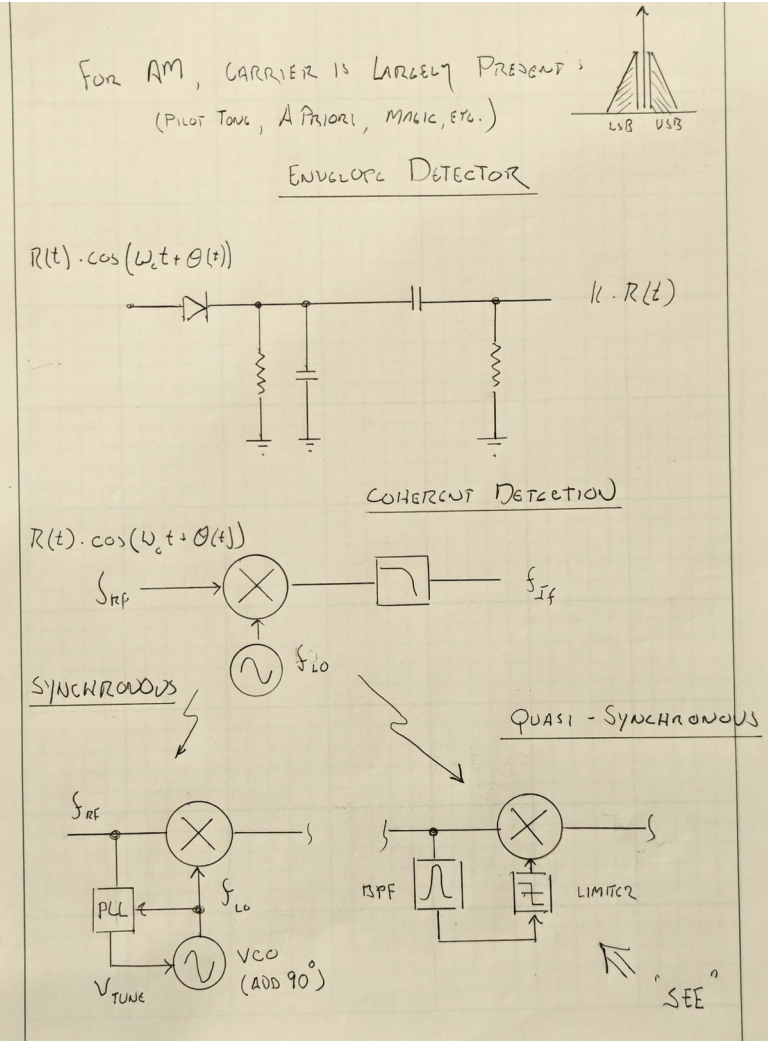 FOR AM, CARRIER IS LARGELY PRESENT:
(PILOT TONE, A PRIORI, MAGIC, ETC.)
LSB USB
ENVELOPE DETECTOR
R(t)·cos(ω_c t + θ(t))
K·R(t)
COHERENT DETECTION
R(t)·cos(ω_c t + θ(t))
f_RF
f_IF
f_LO
SYNCHRONOUS
QUASI-SYNCHRONOUS
f_RF
BPF
LIMITER
PLL
f_LO
VCO
(ADD 90°)
V_TUNE
"SEE"